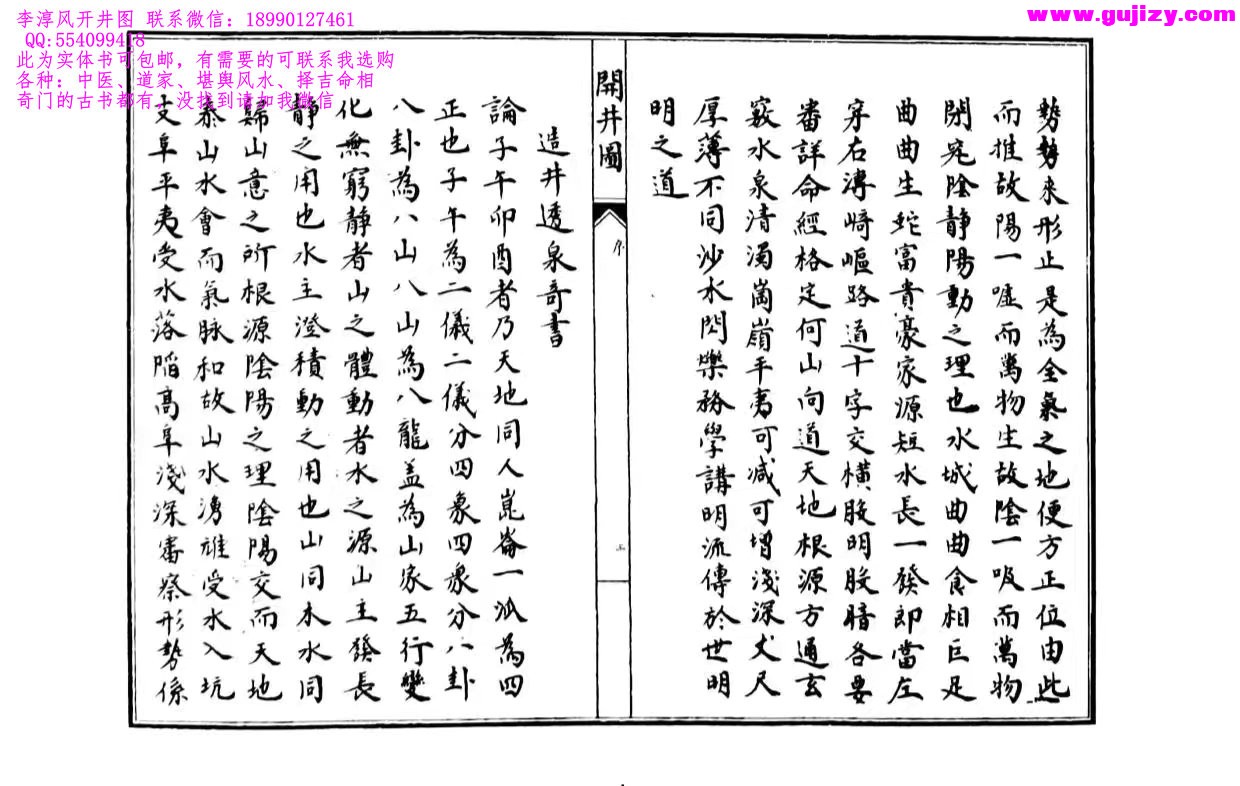 李淳风开井图 联系微信：18990127461
QQ:554099418
此为实体书可包邮，有需要的可联系我选购
各种：中医、道家、堪舆风水、择吉命相
奇门的古书都有，没找到请加我微信
www.gujizy.com
勢勢來形止是為全氣之地便方正位由此
而推故陽一噓而萬物生故陰一吸而萬物
閉宛陰靜陽動之理也水城曲曲食相巨是
曲曲生蛇富貴豪家源短水長一發即當左
穿右漙崎嶇路道十字交橫股明股暗各要
審詳命經格定何山向道天地根源方通玄
竅水泉清濁崗嶺平夷可減可增淺深丈尺
厚薄不同沙水閃爍務學講明流傳於世明
明之道
開井圖
序
上
造井透泉奇書
論子午卯酉者乃天地同人崑崙一派為四
正也子午為二儀二儀分四象四象分八卦
八卦為八山八山為八龍盖為山家五行變
化無窮靜者山之體動者水之源山主發長
靜之用也水主澄積動之用也山同木水同
歸山意之所根源陰陽之理陰陽交而天地
泰山水會而氣脉和故山水湧雄受水入坑
丈阜平夷受水落陷高阜淺深審察形勢係